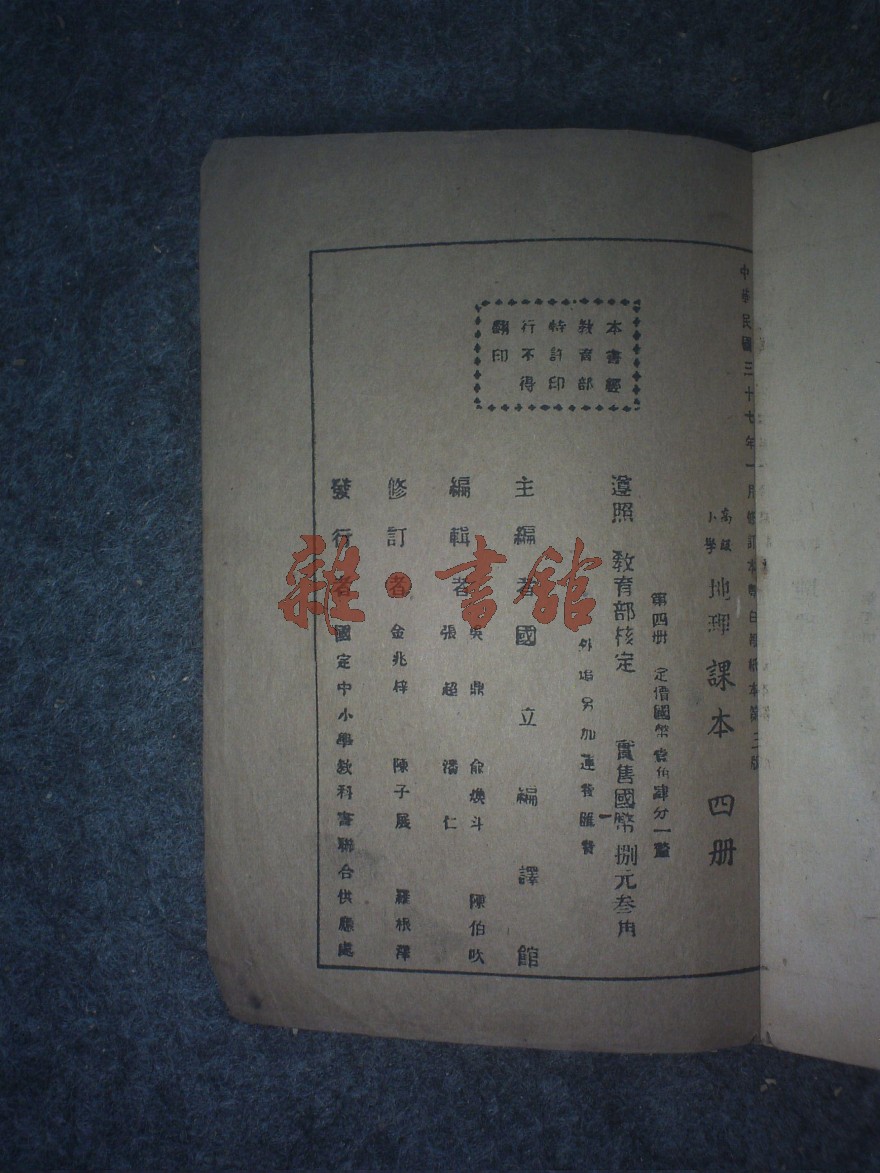 中華民國三十七年一月修訂本
第三版
高級
小學
地理課本 四册
第四册 定價國幣壹角肆分一釐
遵照 教育部核定 實售國幣捌元叁角
外埠另加運費匯費
本書經
教育部
特許印
行不得
翻印
主編者 國立編譯館
編輯者 吳鼎 俞煥斗 陳伯吹
張超 潘仁
修訂者 金兆梓 陳子展 羅根澤
發行者 國定中小學教科書聯合供應處
雜·書館